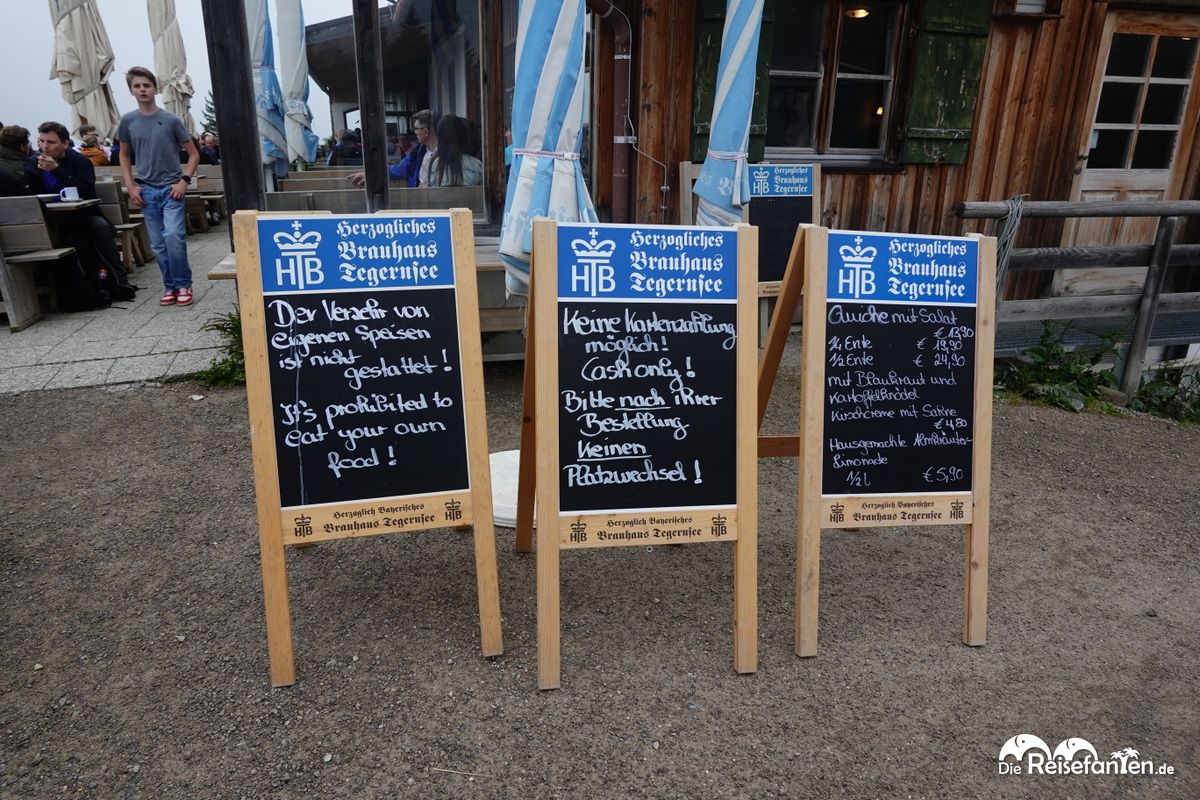 Herzogliches
Brauhaus
Tegernsee
HTB
Der Verzehr von
eigenen Speisen
ist nicht
gestattet!
It's prohibited to
eat your own
food!
Herzoglich Bayerisches
Brauhaus Tegernsee
HTB
HTB
Herzogliches
Brauhaus
Tegernsee
HTB
Keine Kartenzahlung
möglich!
Cash only!
Bitte nach ihrer
Bestellung
Keinen
Platzwechsel!
Herzoglich Bayerisches
Brauhaus Tegernsee
HTB
HTB
Herzogliches
Brauhaus
Tegernsee
HTB
Quiche mit Salat
€ 13,90
1/4 Ente € 19,90
1/2 Ente € 24,90
mit Blaukraut und
Kartoffelknödel
Kirschcreme mit Sahne
€ 4,80
Hausgemachte Almkräuter-
Limonade
1/2 l € 5,90
Herzoglich Bayerisches
Brauhaus Tegernsee
HTB
HTB
Herzogliches
Brauhaus
Tegernsee
HTB
Die Reisefanten.de